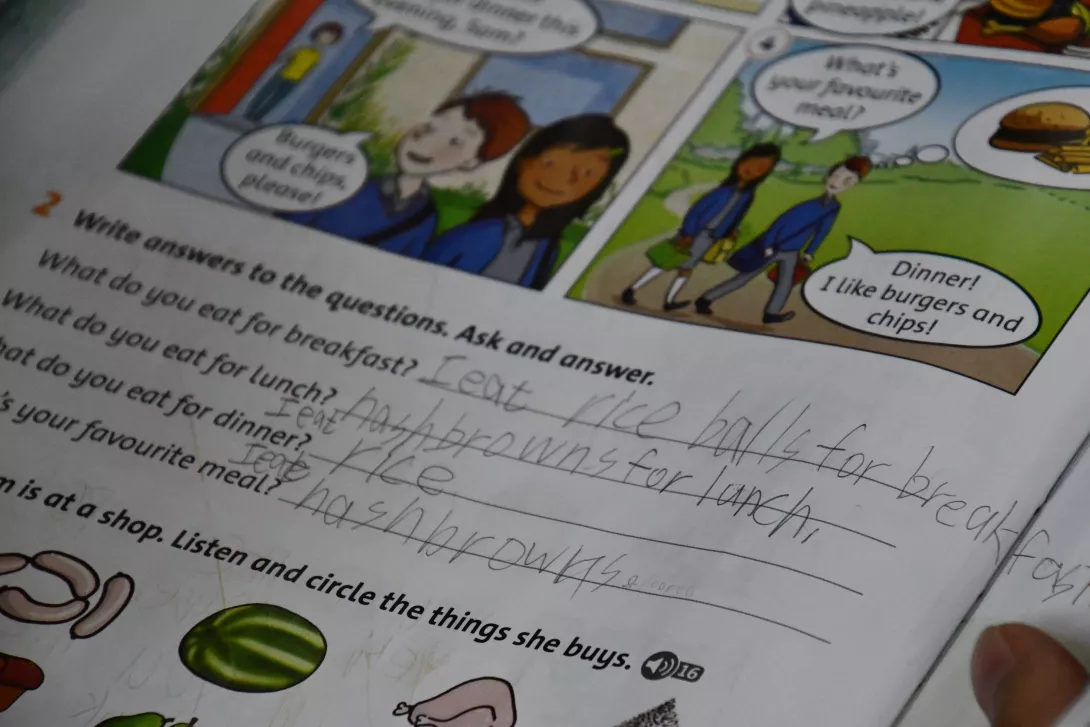 dinner this
evening, Sam?
Burgers
and chips,
please!
pineapple!
4
What's
your favourite
meal?
Dinner!
I like burgers and
chips!
2 Write answers to the questions. Ask and answer.
What do you eat for breakfast? I eat rice balls for breakfast
What do you eat for lunch? I eat hashbrowns for lunch,
hat do you eat for dinner? I eat rice
's your favourite meal? hashbrowns.
m is at a shop. Listen and circle the things she buys. 16